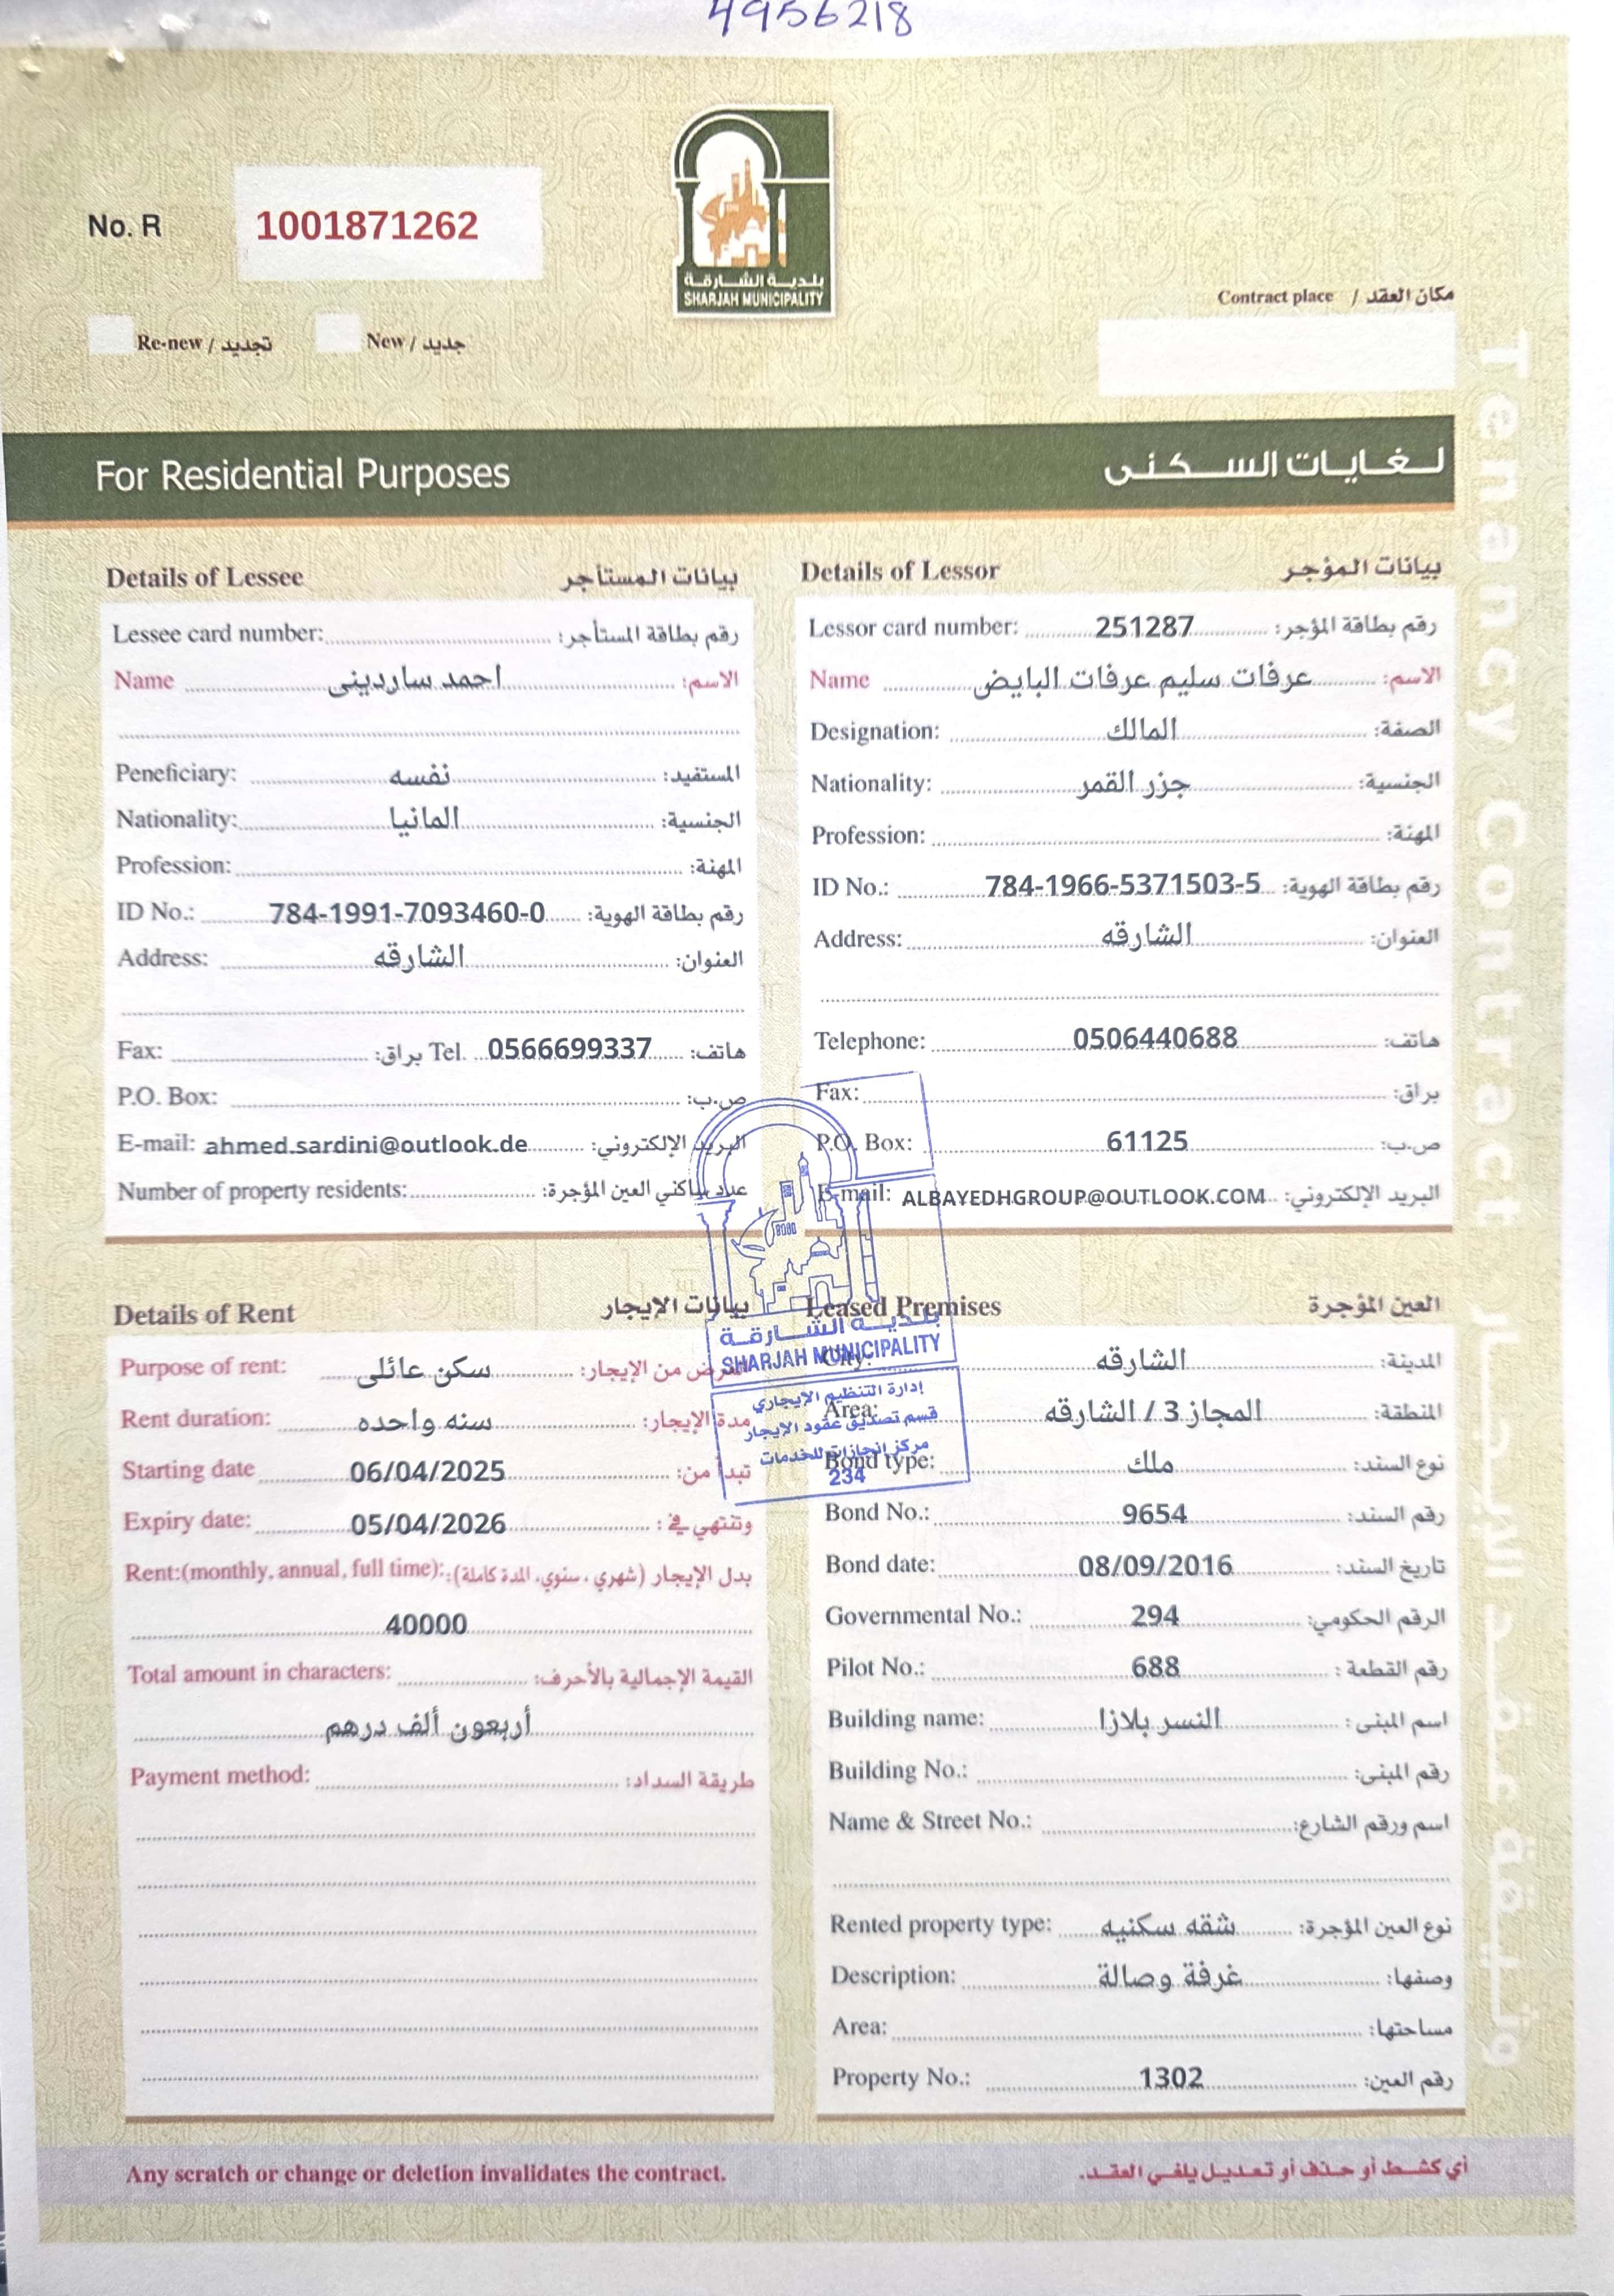 4956218
No. R 1001871262
بلدية الشارقة
SHARJAH MUNICIPALITY
Contract place / مكان العقد
Re-new / تجديد New / جديد
For Residential Purposes لغايات السكنى
Tenancy Contract وثيقة عقد الإيجار
Details of Lessee بيانات المستأجر
Lessee card number: رقم بطاقة المستأجر:
Name احمد ساردينى الاسم:
Peneficiary: نفسه المستفيد:
Nationality: المانيا الجنسية:
Profession: المهنة:
ID No.: 784-1991-7093460-0 رقم بطاقة الهوية:
Address: الشارقه العنوان:
Fax: براق: Tel. 0566699337 هاتف:
P.O. Box: ص.ب:
E-mail: ahmed.sardini@outlook.de البريد الإلكتروني:
Number of property residents: عدد ساكني العين المؤجرة:
Details of Lessor بيانات المؤجر
Lessor card number: 251287 رقم بطاقة المؤجر:
Name عرفات سليم عرفات البايض الاسم:
Designation: المالك الصفة:
Nationality: جزر القمر الجنسية:
Profession: المهنة:
ID No.: 784-1966-5371503-5 رقم بطاقة الهوية:
Address: الشارقه العنوان:
Telephone: 0506440688 هاتف:
Fax: براق:
P.O. Box: 61125 ص.ب:
E-mail: ALBAYEDHGROUP@OUTLOOK.COM البريد الإلكتروني:
Details of Rent بيانات الإيجار
Purpose of rent: سكن عائلى الغرض من الإيجار:
Rent duration: سنه واحده مدة الإيجار:
Starting date 06/04/2025 تبدأ من:
Expiry date: 05/04/2026 وتنتهي في:
Rent:(monthly, annual, full time): بدل الإيجار (شهري، سنوي، المدة كاملة):
40000
Total amount in characters: القيمة الإجمالية بالأحرف:
أربعون ألف درهم
Payment method: طريقة السداد:
بلدية الشارقة
SHARJAH MUNICIPALITY
إدارة التنظيم الإيجاري
قسم تصديق عقود الإيجار
مركز انجازات للخدمات
234
Leased Premises العين المؤجرة
City: الشارقه المدينة:
Area: المجاز 3 / الشارقه المنطقة:
Bond type: ملك نوع السند:
Bond No.: 9654 رقم السند:
Bond date: 08/09/2016 تاريخ السند:
Governmental No.: 294 الرقم الحكومي:
Pilot No.: 688 رقم القطعة:
Building name: النسر بلازا اسم المبنى:
Building No.: رقم المبنى:
Name & Street No.: اسم ورقم الشارع:
Rented property type: شقه سكنيه نوع العين المؤجرة:
Description: غرفة وصالة وصفها:
Area: مساحتها:
Property No.: 1302 رقم العين:
Any scratch or change or deletion invalidates the contract. أي كشط أو حذف أو تعديل يلغي العقد.